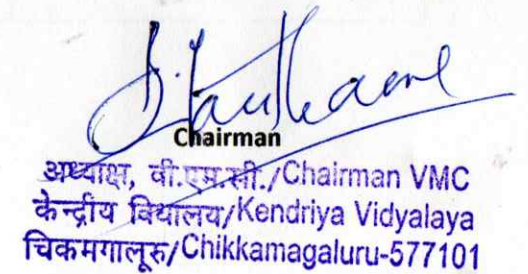 Chairman
अध्याक्ष, वी.एम.सी./Chairman VMC
केन्द्रीय विद्यालय/Kendriya Vidyalaya
चिकमगालूरु/Chikkamagaluru-577101